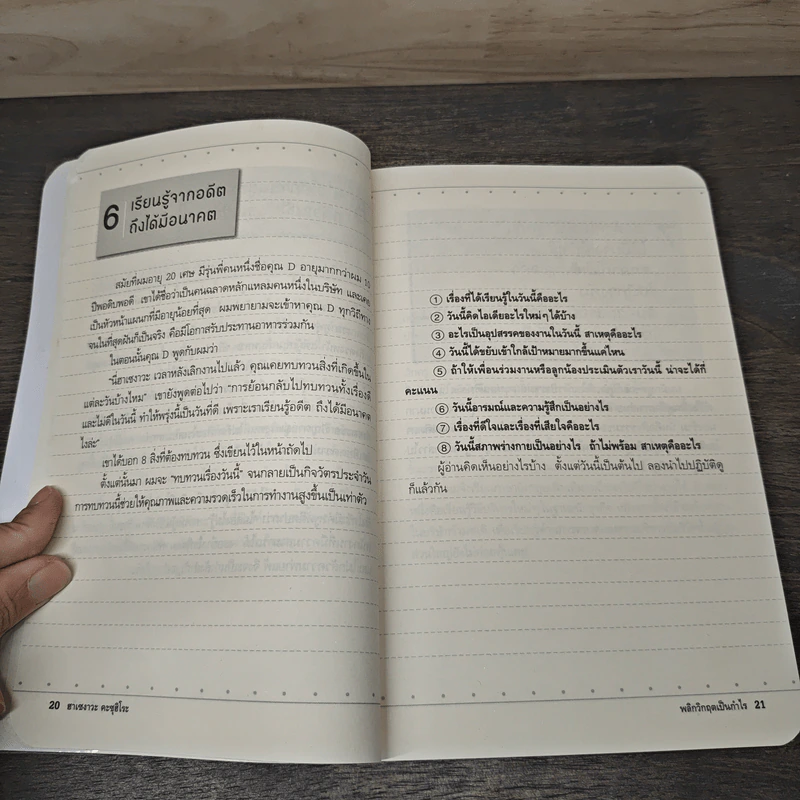 6
เรียนรู้จากอดีต
ถึงได้มีอนาคต
สมัยที่ผมอายุ 20 เศษ มีรุ่นพี่คนหนึ่งชื่อคุณ D อายุมากกว่าผม 10
ปีพอดิบพอดี เขาได้ชื่อว่าเป็นคนฉลาดหลักแหลมคนหนึ่งในบริษัท และเคย
เป็นหัวหน้าแผนกที่มีอายุน้อยที่สุด ผมพยายามจะเข้าหาคุณ D ทุกวิถีทาง
จนในที่สุดฝันก็เป็นจริง คือมีโอกาสรับประทานอาหารร่วมกัน
ในตอนนั้นคุณ D พูดกับผมว่า
"นี่ฮาเซงาวะ เวลาหลังเลิกงานไปแล้ว คุณเคยทบทวนสิ่งที่เกิดขึ้นใน
แต่ละวันบ้างไหม" เขายังพูดต่อไปว่า "การย้อนกลับไปทบทวนทั้งเรื่องดี
และไม่ดีในวันนี้ ทำให้พรุ่งนี้เป็นวันที่ดี เพราะเราเรียนรู้อดีต ถึงได้มีอนาคต
ไงล่ะ"
เขาได้บอก 8 สิ่งที่ต้องทบทวน ซึ่งเขียนไว้ในหน้าถัดไป
ตั้งแต่นั้นมา ผมจะ "ทบทวนเรื่องวันนี้" จนกลายเป็นกิจวัตรประจำวัน
การทบทวนนี้ช่วยให้คุณภาพและความรวดเร็วในการทำงานสูงขึ้นเป็นเท่าตัว
20 ฮาเซงาวะ คะซุฮิโระ
① เรื่องที่ได้เรียนรู้ในวันนี้คืออะไร
② วันนี้คิดไอเดียอะไรใหม่ๆ ได้บ้าง
③ อะไรเป็นอุปสรรคของงานในวันนี้ สาเหตุคืออะไร
④ วันนี้ได้ขยับเข้าใกล้เป้าหมายมากขึ้นแค่ไหน
⑤ ถ้าให้เพื่อนร่วมงานหรือลูกน้องประเมินตัวเราวันนี้ น่าจะได้กี่
คะแนน
⑥ วันนี้อารมณ์และความรู้สึกเป็นอย่างไร
⑦ เรื่องที่ดีใจและเรื่องที่เสียใจคืออะไร
⑧ วันนี้สภาพร่างกายเป็นอย่างไร ถ้าไม่พร้อม สาเหตุคืออะไร
ผู้อ่านคิดเห็นอย่างไรบ้าง ตั้งแต่วันนี้เป็นต้นไป ลองนำไปปฏิบัติดู
ก็แล้วกัน
พลิกวิกฤตเป็นกำไร 21